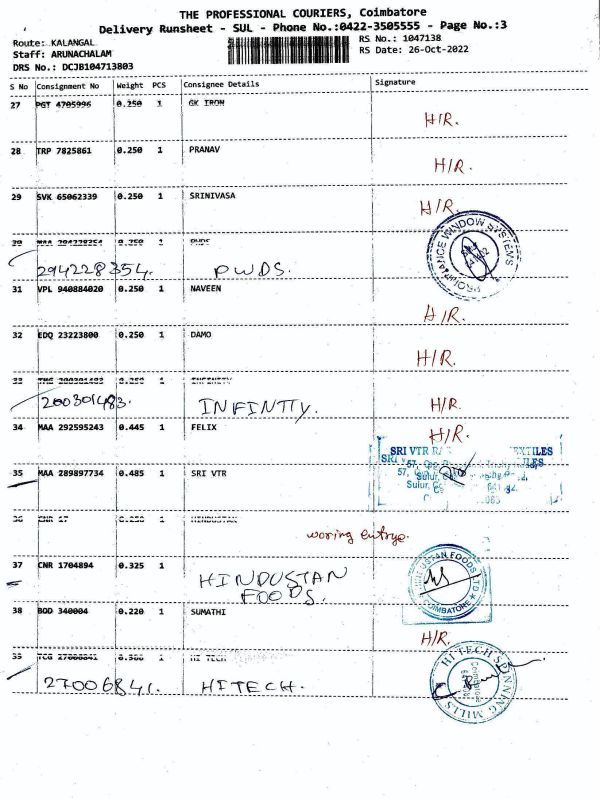 THE PROFESSIONAL COURIERS, Coimbatore
Delivery Runsheet - SUL - Phone No.:0422-3505555 - Page No.:3
Route: KALANGAL RS No.: 1047138
Staff: ARUNACHALAM RS Date: 26-Oct-2022
DRS No.: DCJB104713803
S No Consignment No Weight PCS Consignee Details Signature
27 PGT 4705996 0.250 1 GK IRON
H/R.
28 TRP 7825861 0.250 1 PRANAV
H/R.
29 SVK 65062339 0.250 1 SRINIVASA
H/R.
30 MAA 294228354 0.250 1 PWDS
294228354. PWDS.
WINDOW SYSTEMS
31 VPL 940884020 0.250 1 NAVEEN
H/R.
32 EDQ 23223800 0.250 1 DAMO
H/R.
33 200301483 0.250 1 INFINITY
200301483. INFINTTY. H/R.
34 MAA 292595243 0.445 1 FELIX
H/R.
SRI VTR TEXTILES
35 MAA 289897734 0.485 1 SRI VTR
57,
Sulur,
36 1 HINDUSTAN
woring entrye.
37 CNR 1704894 0.325 1
HINDUSTAN
FOODS.
HINDUSTAN FOODS LTD
COIMBATORE
38 BOD 340004 0.220 1 SUMATHI
H/R.
39 TCG 27006841 1 HI TECH
27006841. HITECH.
HI TECH SPINNING MILLS
Coimbatore